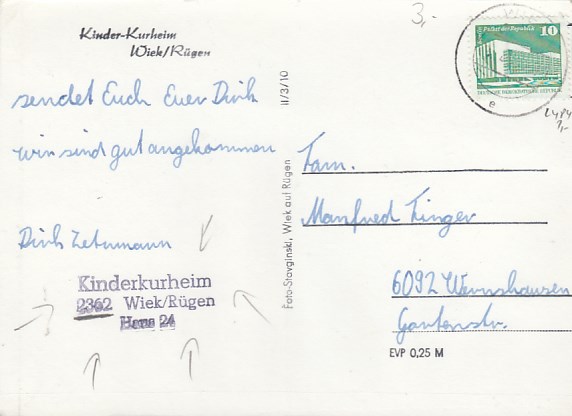 3,-
Kinder-Kurheim
Wiek/Rügen
Palast der Republik 10
DEUTSCHE DEMOKRATISCHE REPUBLIK
sendet Euch Euer Dirk
wir sind gut angekommen
Dirk
Kinderkurheim
2362 Wiek/Rügen
Haus 24
II/3/10
Foto-Stavginski, Wiek auf Rügen
Fam.
Manfred
6092 Wernshausen
Gartenstr.
EVP 0,25 M